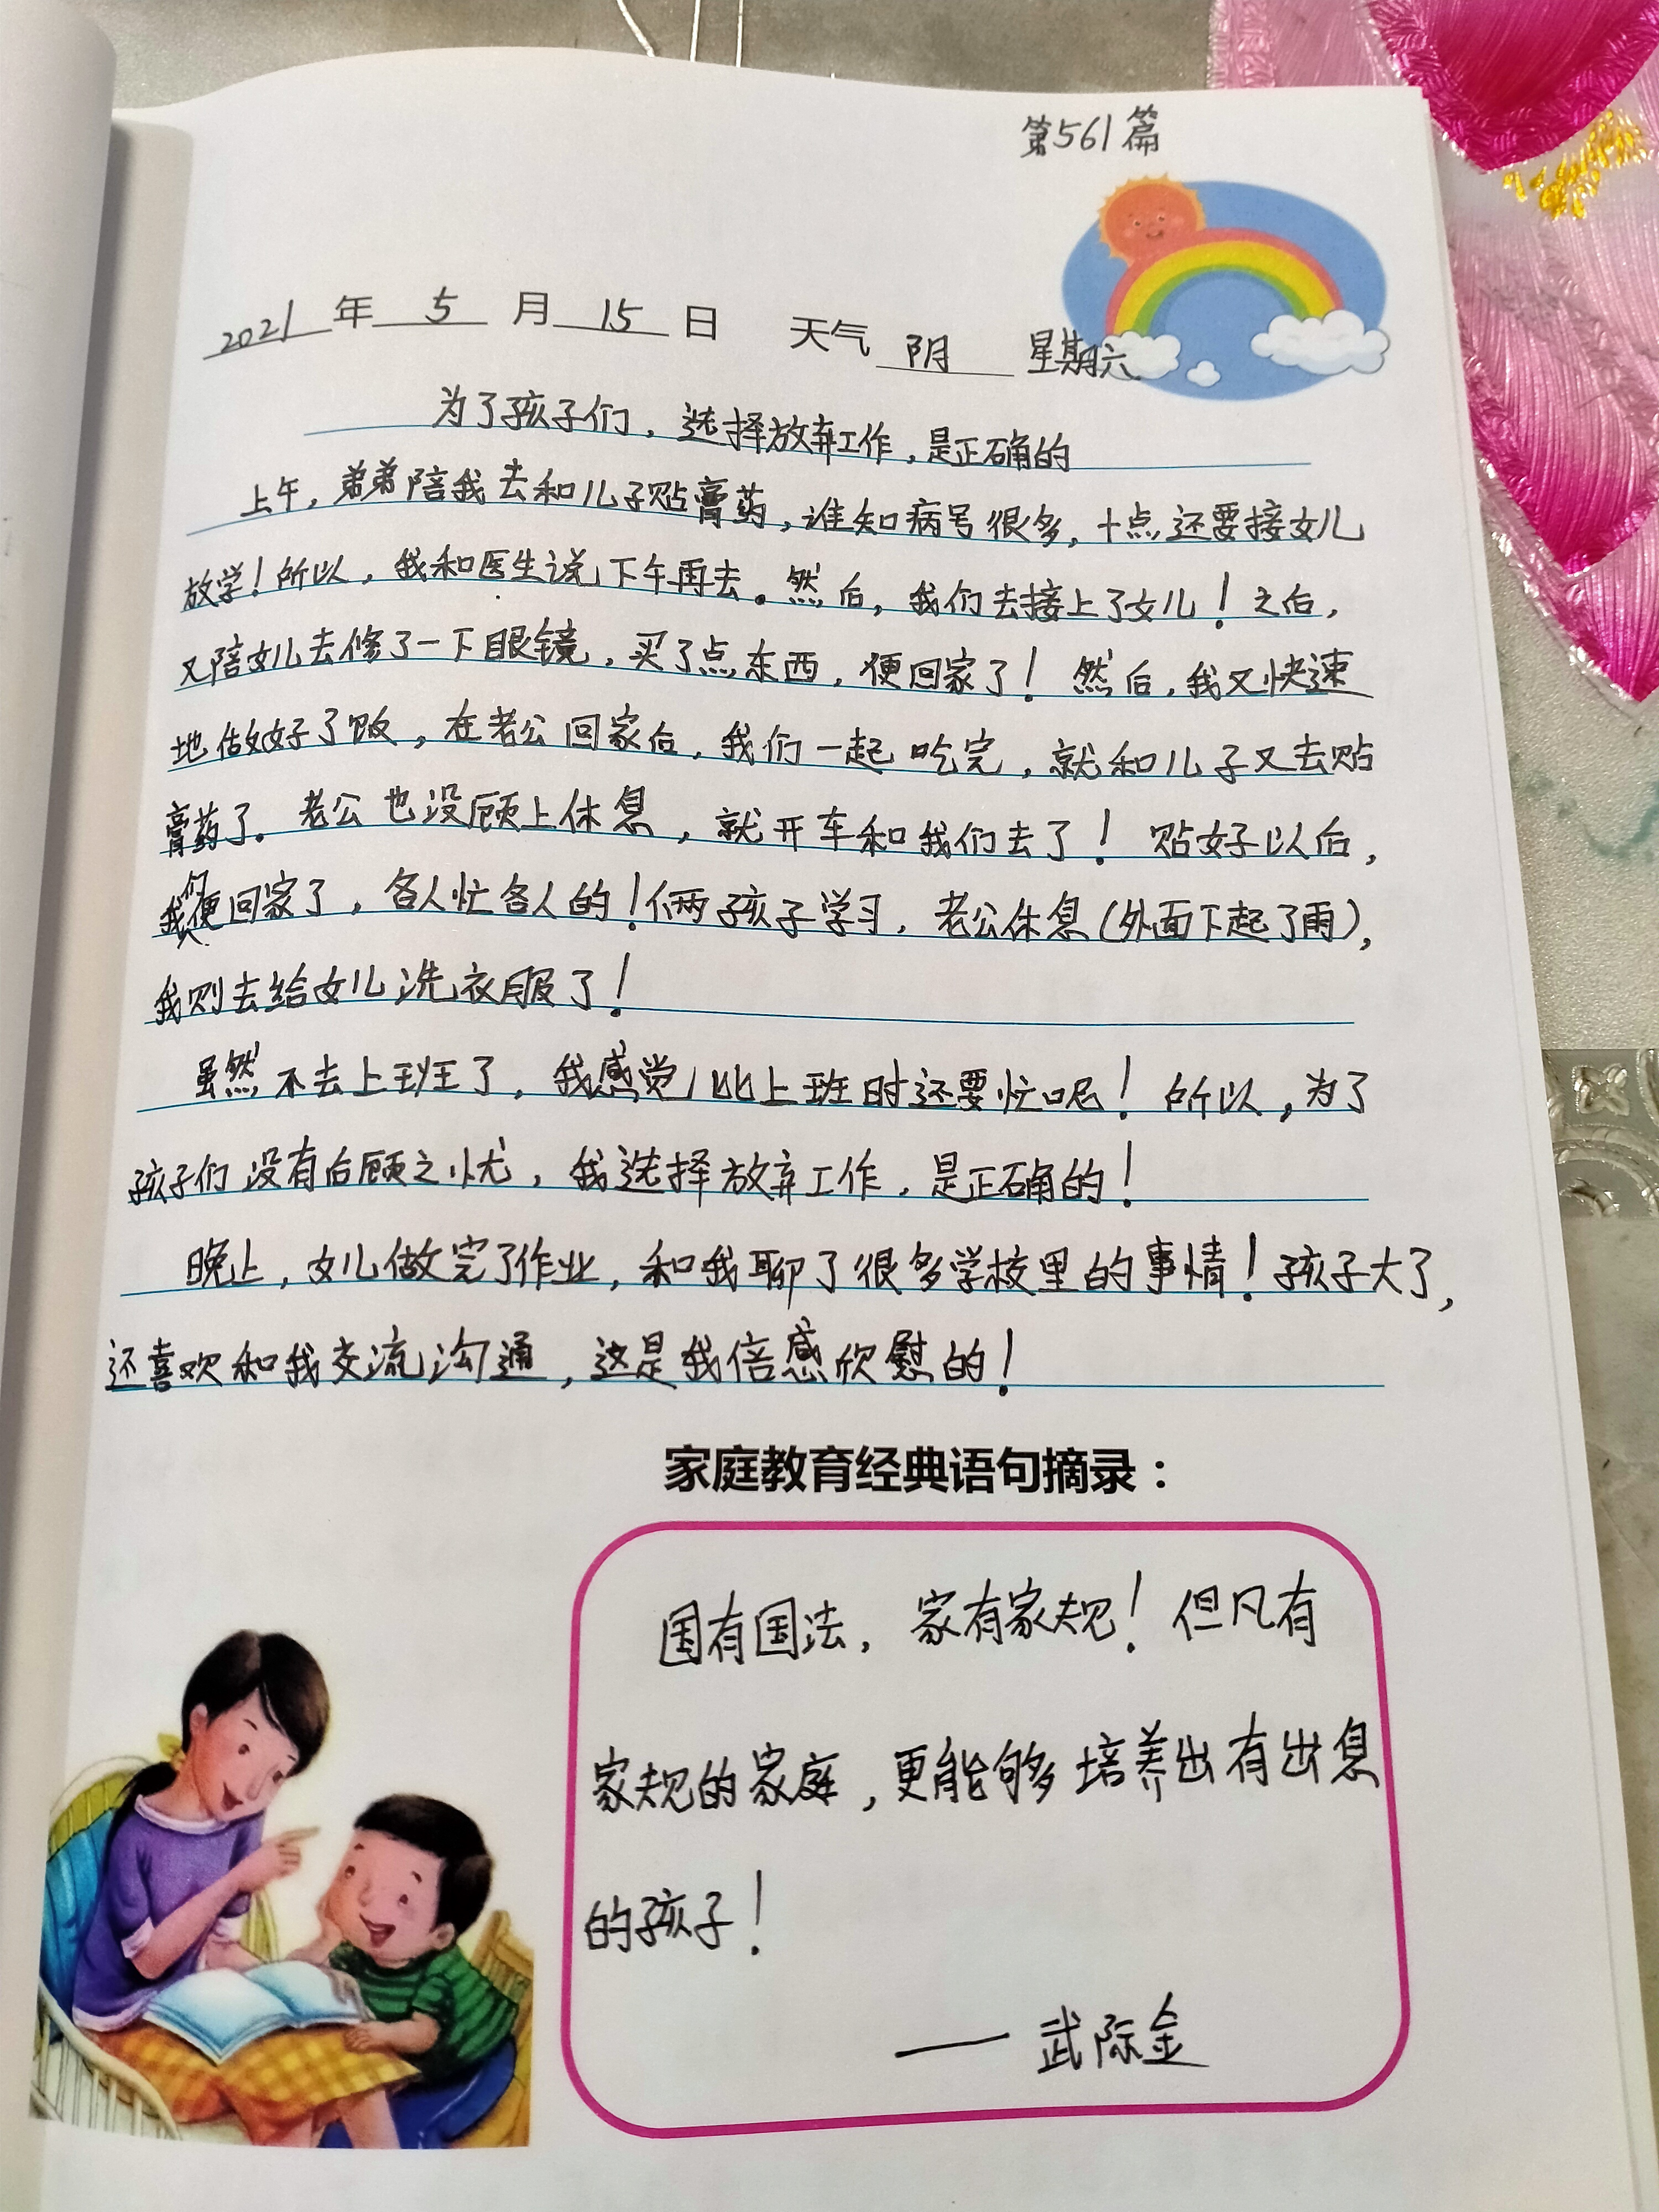 第561篇
2021年 5 月 15 日 天气 阴 星期六
为了孩子们，选择放弃工作，是正确的
上午，弟弟陪我去和儿子贴膏药，谁知病号很多，十点还要接女儿
放学！所以，我和医生说下午再去。然后，我们去接上了女儿！之后，
又陪女儿去修了一下眼镜，买了点东西，便回家了！然后，我又快速
地做好了饭，在老公回家后，我们一起吃完，就和儿子又去贴
膏药了。老公也没顾上休息，就开车和我们去了！贴好以后，
我们便回家了，各人忙各人的！俩孩子学习，老公休息（外面下起了雨），
我则去给女儿洗衣服了！
虽然不去上班了，我感觉比上班时还要忙呢！所以，为了
孩子们没有后顾之忧，我选择放弃工作，是正确的！
晚上，女儿做完了作业，和我聊了很多学校里的事情！孩子大了，
还喜欢和我交流沟通，这是我倍感欣慰的！
家庭教育经典语句摘录：
国有国法，家有家规！但凡有
家规的家庭，更能够培养出有出息
的孩子！
——武际金